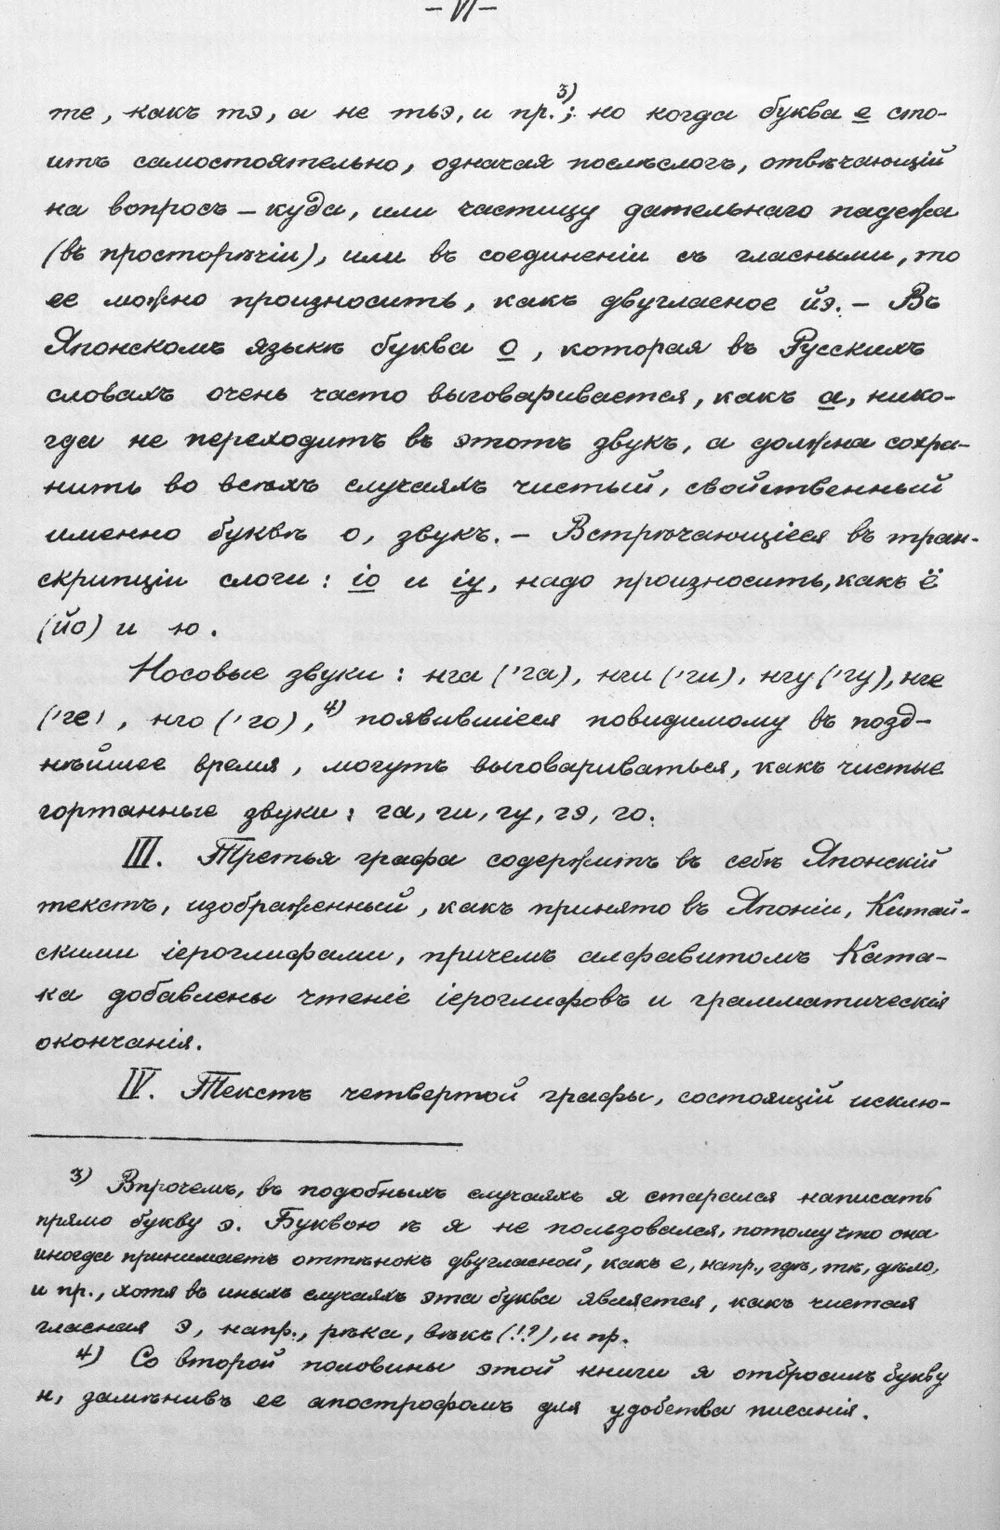 – VI –
те, какъ тэ, а не тьэ, и пр.³⁾; но когда буква е сто-
итъ самостоятельно, означая послѣслогъ, отвѣчающій
на вопросъ – куда, или частицу дательнаго падежа
(въ просторѣчіи), или въ соединеніи съ гласными, то
ее можно произносить, какъ двугласное йэ. – Въ
Японскомъ языкѣ буква о, которая въ Русскихъ
словахъ очень часто выговаривается, какъ а, нико-
гда не переходитъ въ этотъ звукъ, а должна сохра-
нить во всѣхъ случаяхъ чистый, свойственный
именно буквѣ о, звукъ. – Встрѣчающіеся въ тран-
скрипціи слоги: іо и іу, надо произносить, какъ ё
(йо) и ю.
Носовые звуки: нга ('га), нги ('ги), нгу ('гу), нге
('ге), нго ('го),⁴⁾ появившіеся повидимому въ позд-
нѣйшее время, могутъ выговариваться, какъ чистые
гортанные звуки: га, ги, гу, гэ, го.
III. Третья графа содержитъ въ себѣ Японскій
текстъ, изображенный, какъ принято въ Японіи, Китай-
скими іероглифами, причемъ алфавитомъ Ката-
ка добавлены чтеніе іероглифовъ и грамматическія
окончанія.
IV. Текстъ четвертой графы, состоящій исклю-
3) Впрочемъ, въ подобныхъ случаяхъ я старался написать
прямо букву э. Буквою ѣ я не пользовался, потому что она
иногда принимаетъ оттѣнокъ двугласной, какъ е, напр., гдѣ, тѣ, дѣло,
и пр., хотя въ иныхъ случаяхъ эта буква является, какъ чистая
гласная э, напр., рѣка, вѣкъ (!?), и пр.
4) Со второй половины этой книги я отбросилъ букву
н, замѣнивъ ее апострофомъ для удобства писанія.